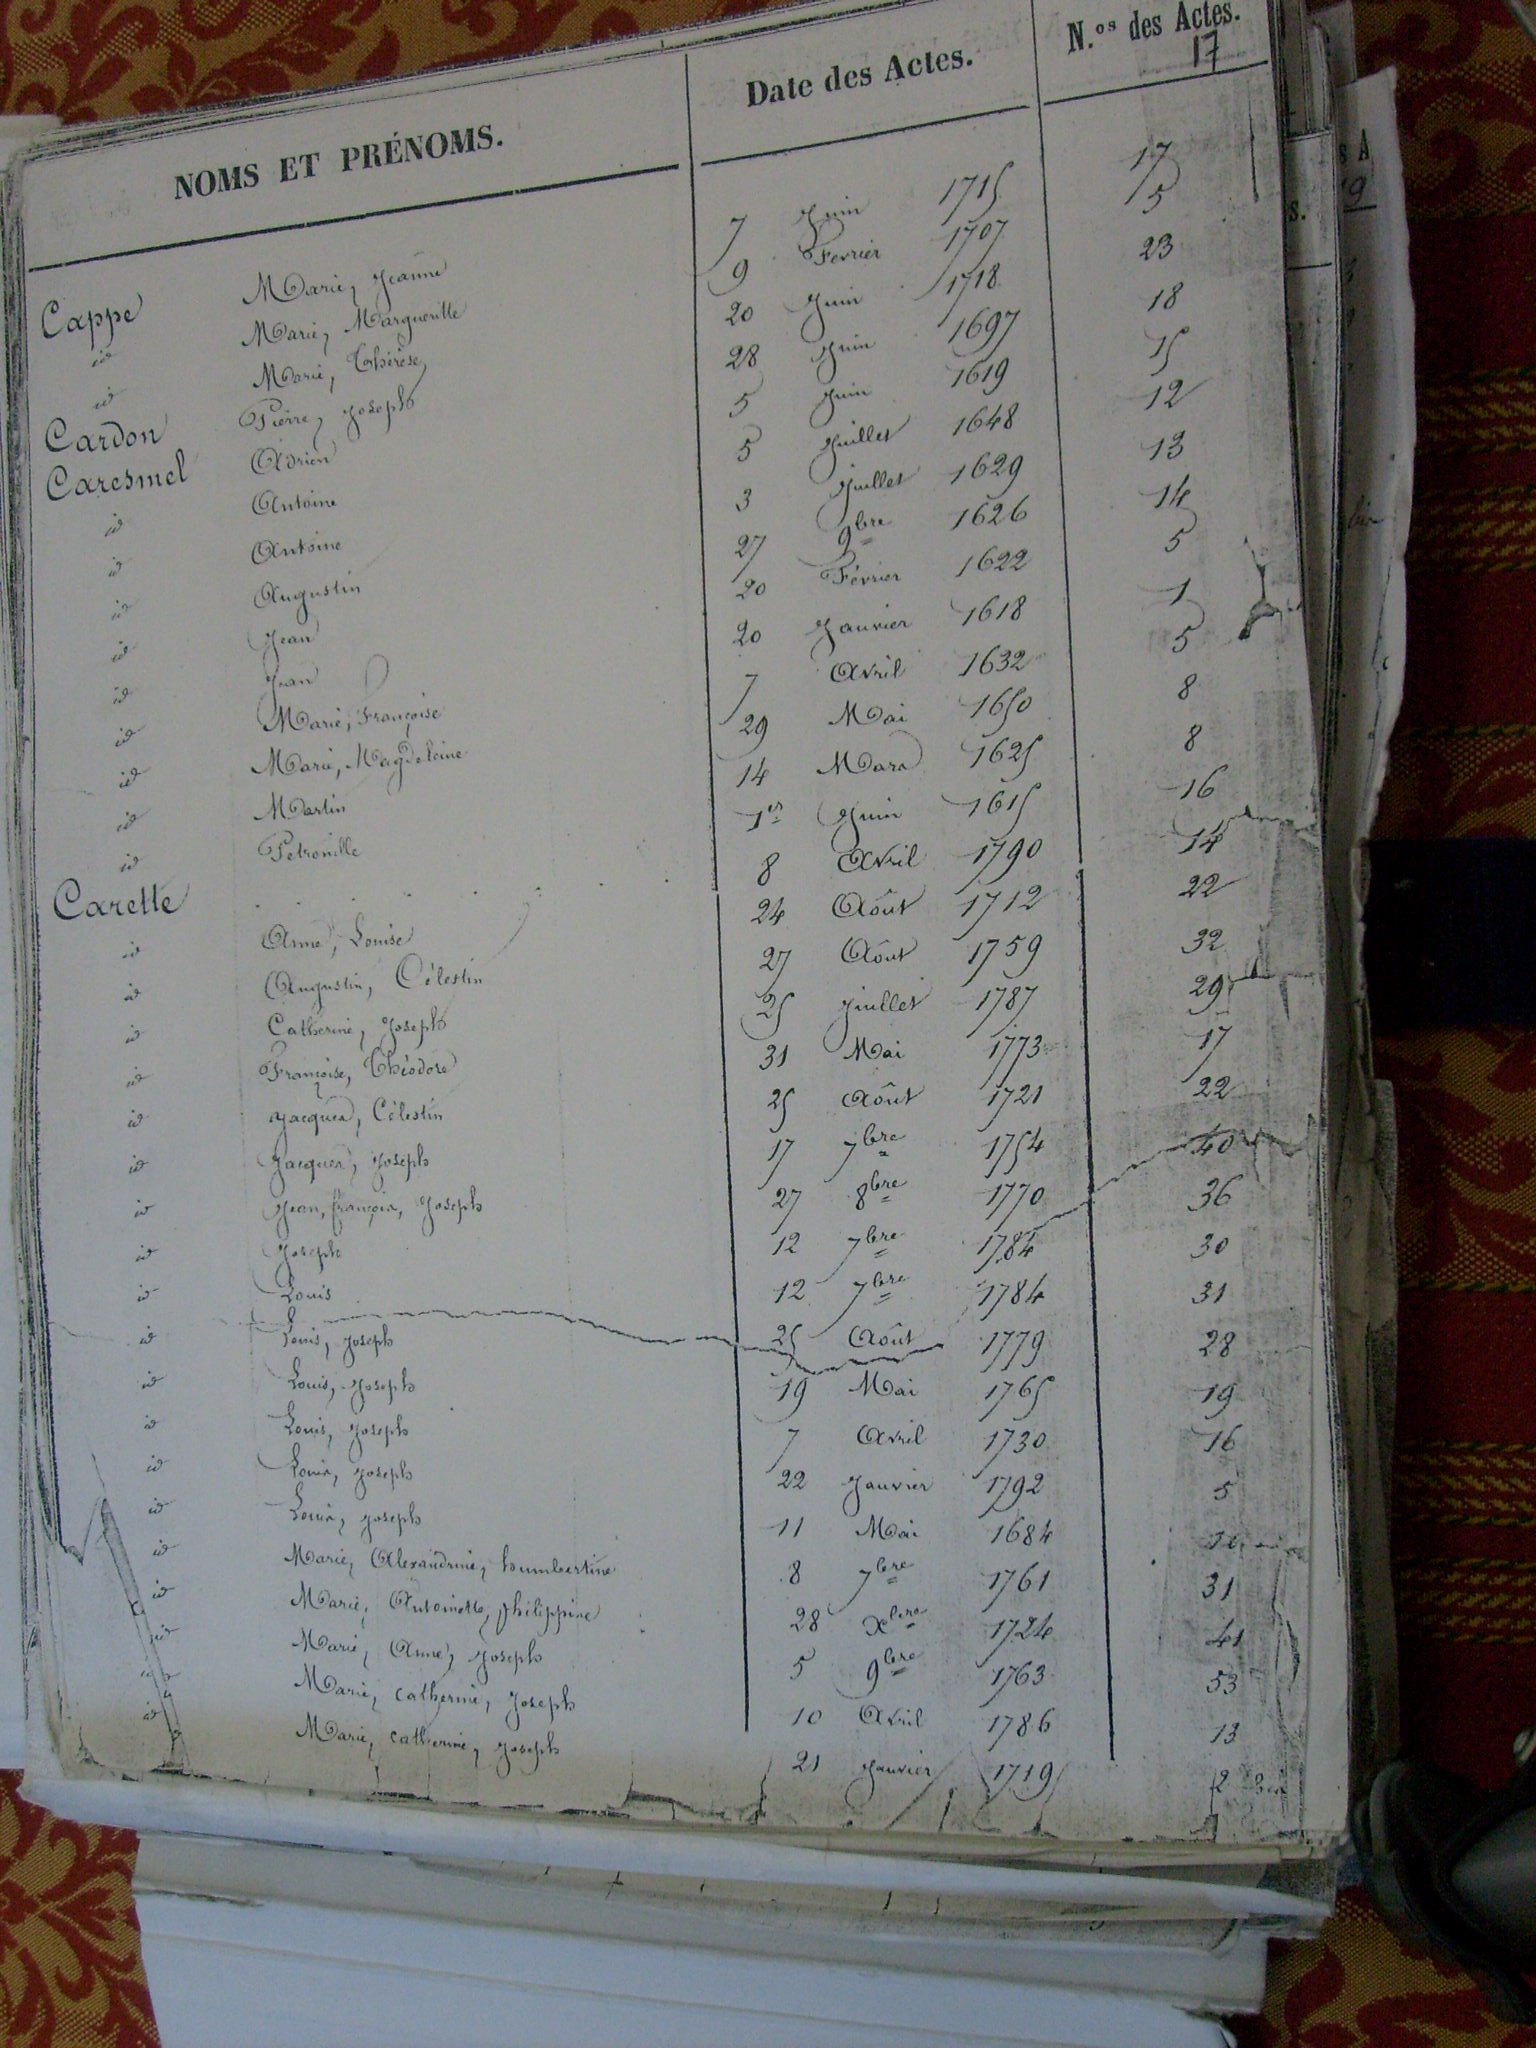 NOMS ET PRÉNOMS. Date des Actes. N.os des Actes.
17
Cappe Marie, Jeanne 7 Juin 1715 17
id Marie, Marguerite 9 Fevrier 1707 5
id Marie, Thérèse 20 Juin 1718 23
Cardon Pierre, Joseph 28 Juin 1697 18
Caresmel Adrien 5 Juin 1619 15
id Antoine 5 Juillet 1648 12
id Antoine 3 Juillet 1629 13
id Augustin 27 9bre 1626 14
id Jean 20 Février 1622 5
id Jean 20 Janvier 1618 1
id Marie, Françoise 7 Avril 1632 5
id Marie, Magdeleine 29 Mai 1650 8
id Martin 14 Mars 1625 8
id Petronille 1er Juin 1615 16
Carette . . . . . 8 Avril 1790 14
id Anne, Louise 24 Août 1712 22
id Augustin, Célestin 27 Août 1759 32
id Catherine, Joseph 25 Juillet 1787 29
id Françoise, Théodore 31 Mai 1773 17
id Jacques, Célestin 25 Août 1721 22
id Jacques, Joseph 17 7bre 1754 40
id Jean, François, Joseph 27 8bre 1770 36
id Joseph 12 7bre 1784 30
id Louis 12 7bre 1784 31
id Louis, Joseph 25 Août 1779 28
id Louis, Joseph 19 Mai 1765 19
id Louis, Joseph 7 Avril 1730 16
id Louis, Joseph 22 Janvier 1792 5
id Louis, Joseph 11 Mai 1684
id Marie, Alexandrine, humbertine 8 7bre 1761 31
id Marie, Antoinette, philippine 28 Xbre 1724 41
id Marie, Anne, Joseph 5 9bre 1763 53
id Marie, catherine, Joseph 10 Avril 1786 13
id Marie, catherine, Joseph 21 Janvier 1719 2